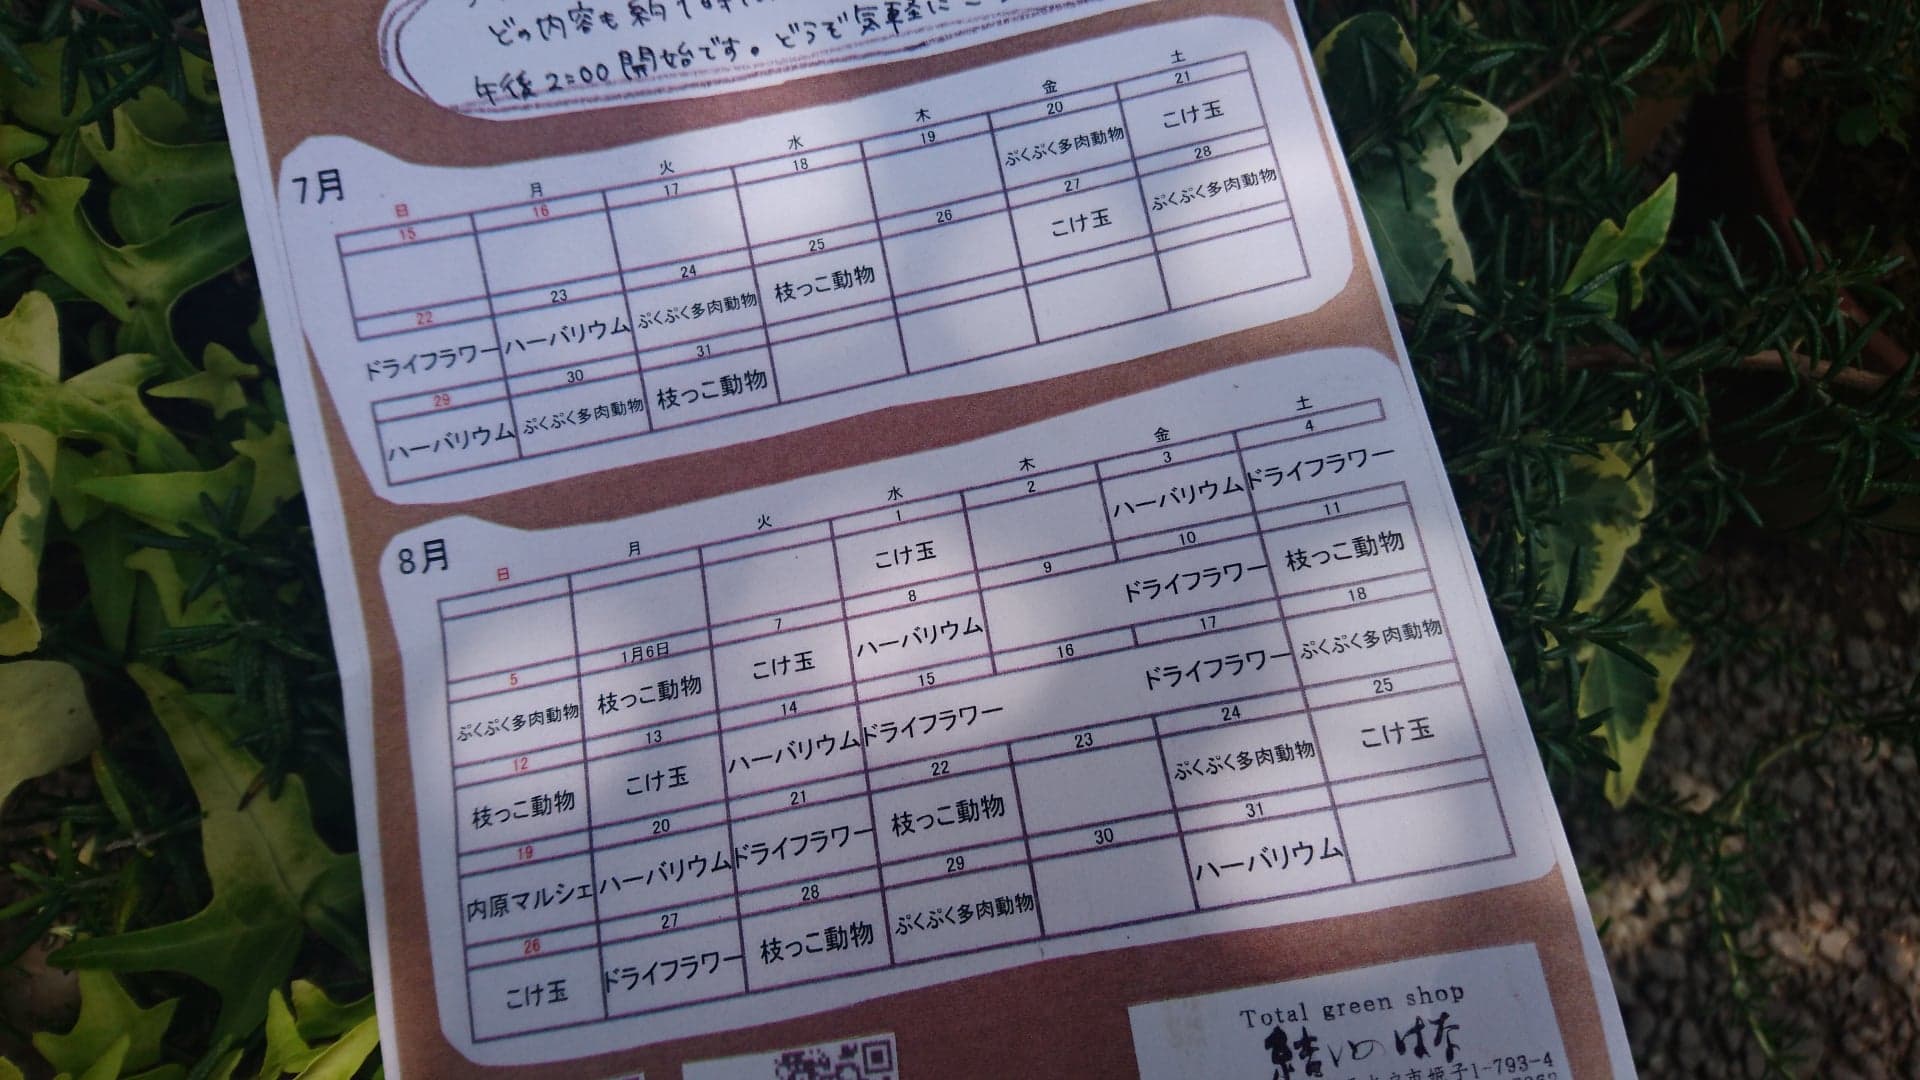 どの内容も約1時
午後2:00開始です。どうぞ気軽に
7月
日 月 火 水 木 金 土
15 16 17 18 19 20 21
ぷくぷく多肉動物 こけ玉
22 23 24 25 26 27 28
ドライフラワー ハーバリウム ぷくぷく多肉動物 枝っこ動物 こけ玉 ぷくぷく多肉動物
29 30 31
ハーバリウム ぷくぷく多肉動物 枝っこ動物
8月
日 月 火 水 木 金 土
1 2 3 4
こけ玉 ハーバリウム ドライフラワー
5 1月6日 7 8 9 10 11
ぷくぷく多肉動物 枝っこ動物 こけ玉 ハーバリウム ドライフラワー 枝っこ動物
12 13 14 15 16 17 18
枝っこ動物 こけ玉 ハーバリウム ドライフラワー ドライフラワー ぷくぷく多肉動物
19 20 21 22 23 24 25
内原マルシェ ハーバリウム ドライフラワー 枝っこ動物 ぷくぷく多肉動物 こけ玉
26 27 28 29 30 31
こけ玉 ドライフラワー 枝っこ動物 ぷくぷく多肉動物 ハーバリウム
Total green shop
結いのはな
市姫子1-793-4